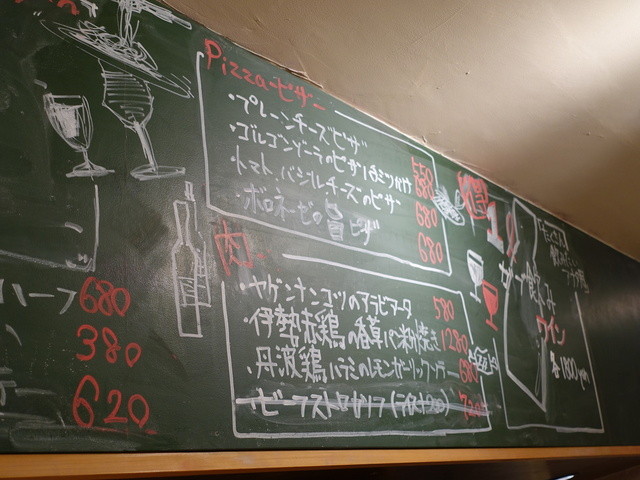 Pizza ピザー
・プレーンチーズピザ 550
・ゴルゴンゾーラのピザ はちみつがけ 680
・トマト、バジルチーズのピザ 680
・ボロネーゼの旨ピザ 680
肉
・ヤゲンナンコツのアラビアータ 580
・伊勢赤鶏の香草パン粉焼き 1280
・丹波鶏ハラミのレモンガーリックソテー 680
・ビーフストロガノフ
ハーフ 680
380
620
飲み
ワイン
各1800yen